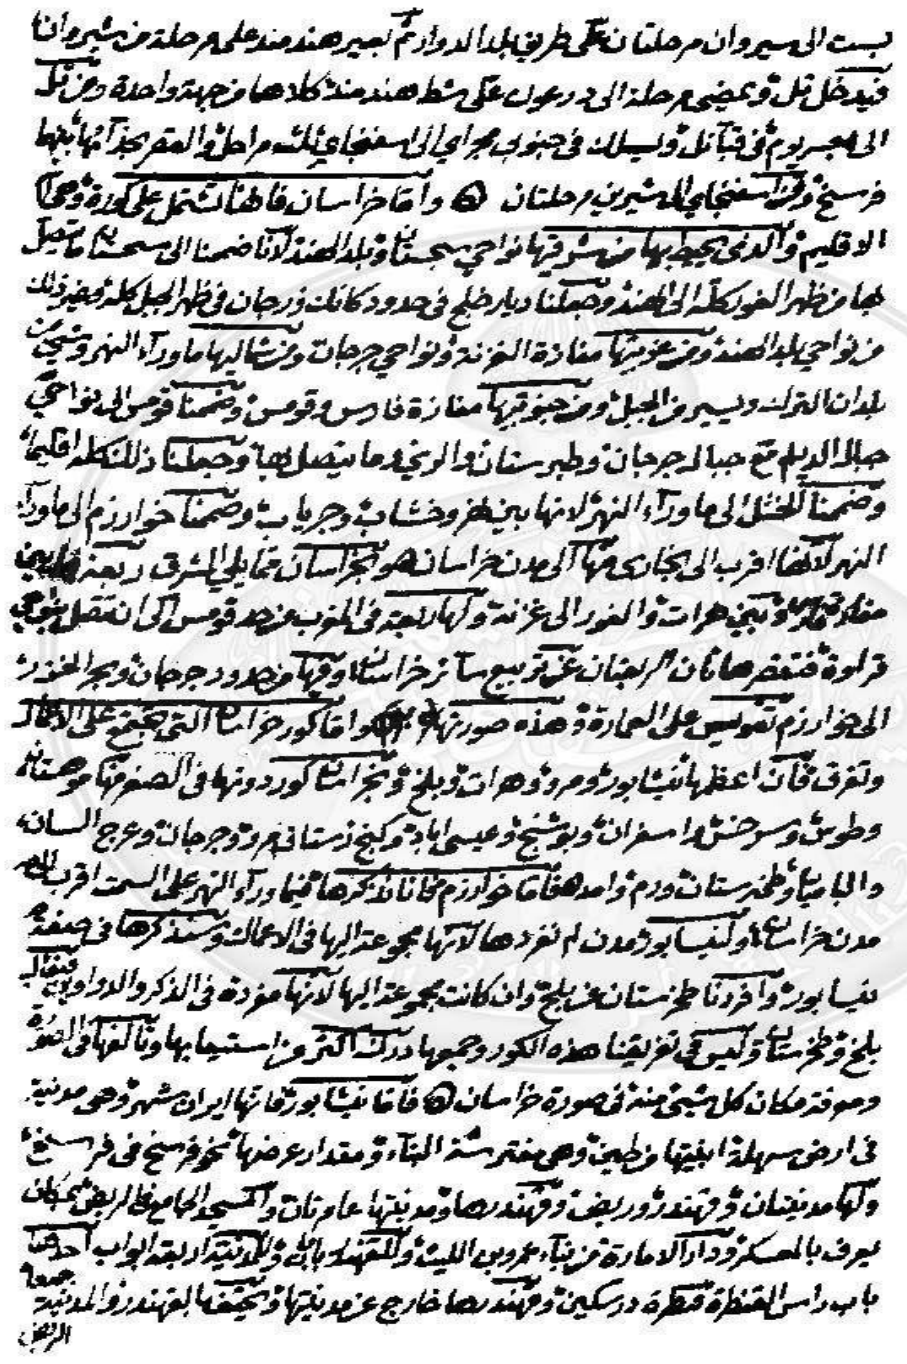 بست الى سيروان مرحلتان على طريق بلد الدوار ثم تعبر هندمند على مرحلة من شيروان
فيدخل تل ويمضى مرحلة الى درعون على شط هندمند كلاهما من جهة واحدة ومن تل
الى يوم فى قبائل ويسلك فى جنوب الى اسفنجاي ثلث مراحل والقصر بحذائها بينهما
فرسخ ومن اسفنجاي الى شيرين مرحلتان واما خراسان فانها تشتمل على كورة وهى
الاقليم والذى يحيط بها من شرقيها نواحي سجستان وبلد الهند لانا ضممنا الى سجستان ما يتصل
بها من ظهر الغور كله الى الهند وجعلنا ديار خلج فى حدود كابل وزجان فى ظهر الجبل كله وغير ذلك
من نواحي بلد الهند ومن غربيها مفازة الغزية ونواحي جرجان ومن شماليها ما ورآء النهر وشئ من
بلدان الترك ويسير من الجبل ومن جنوبيها مفازة فارس وقومس وضممنا قومس الى نواحي
جبال الديلم مع جبال جرجان وطبرستان والري وما يتصل بها وجعلنا ذلك كله اقليما
وضممنا الختل الى ما ورآء النهر لانها بين نهر وخشاب وجرياب وضممنا خوارزم الى ما ورآء
النهر لانها اقرب الى بخارى منها الى مدن خراسان هو بخراسان مما يلي المشرق زنقة فيما بين
مفازة فارس وبين هرات والغور الى غزنة ولها زنقة فى المغرب من حد قومس الى ان تتصل بنواحي
فراوة فتقصر هاتان الزنقتان عن تربيع سائر خراسان وفيها من حدود جرجان وبحر الخزر
الى خوارزم تقويس على العمارة وهذه صورتها واما كور خراسان التى تجتمع على الاعمال
وتفرق فان اعظمها نيشابور ومرو وهرات وبلخ وبخراسان كور دونها فى الصغر منها قوهستان
وطوس وسرخس واسفران وبوشنج وعيسى اباد وكنج رستاق مرو وجرجان وعرج السان
والباميان وطخرستان وزم وامد فاما خوارزم فانا نذكرها فيما ورآء النهر على السمت اقرب الى
مدن خراسان ولنيسابور مدن لم نفردها لانها مجموعة اليها فى الاعمال وسنذكرها فى صفة
نيسابور وافردنا طخرستان عن بلخ وان كانت مجموعة اليها لانها مفردة فى الذكر والدواوين فيقال
بلخ وطخرستان وليس فى تفريقنا هذه الكور وجمعها درك اكثر من استيعابها وتأليفها فى الصورة
ومعرفة مكان كل شئ منه فى صورة خراسان فاما نيشابور فانها ايران شهر وهى مدينة
فى ارض سهلة ابنيتها من طين وهى مفترشة البنآء ومقدار عرضها نحو فرسخ فى فرسخ
ولها مدينتان وقهندز وربض وقهندزها ومدينتها عامرتان والمسجد الجامع فى الربض بمكان
يعرف بالمعسكر ودار الامارة من بنآء عمرو بن الليث وللقهندز بابان وللمدينة اربعة ابواب احدها
باب راس القنطرة وقهندزها خارج عن مدينتها ويحتف بالقهندز والمدينة جميعا
الربض